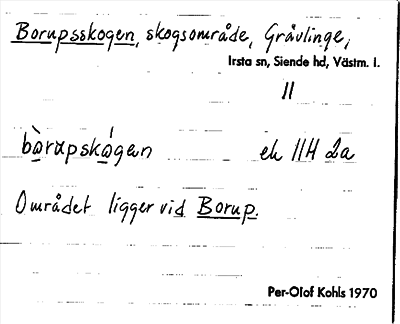 Borupsskogen, skogsområde, Grävlinge,
Irsta sn, Siende hd, Västm. l.
11
bòrupskógen ek 11H 2a
Området ligger vid Borup.
Per-Olof Kohls 1970